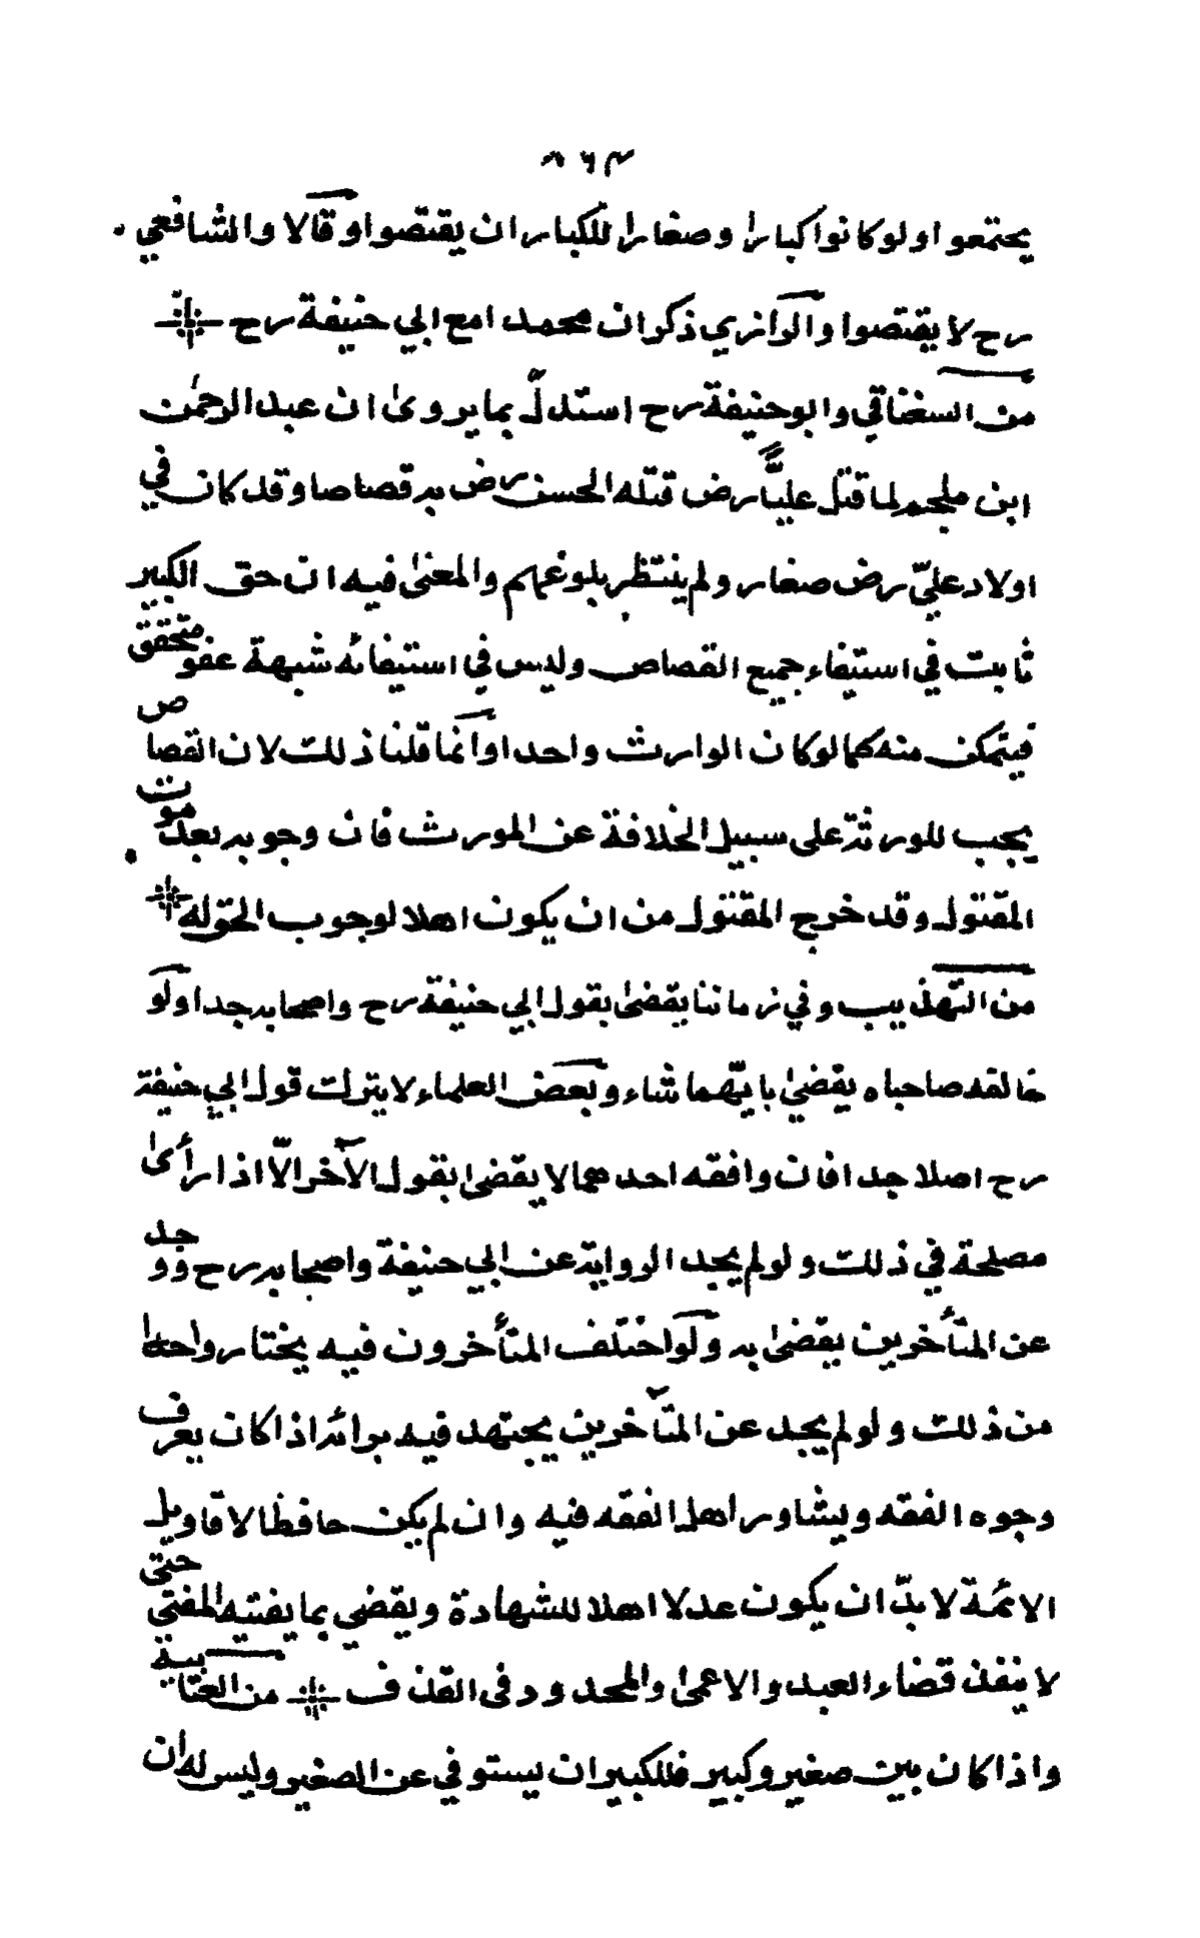 يجتمعوا ولو كانوا كبارا وصغارا للكبار ان يقتصوا وقالا والشافعي
رح لا يقتصوا والرازي ذكر ان محمدا مع ابي حنيفة رح
من السغناقي وابو حنيفة رح استدلّ بما يروىٰ ان عبد الرحمٰن
ابن ملجم لما قتل عليًّا رض قتله الحسن رض به قصاصا وقد كان في
اولاد عليّ رض صغار ولم ينتظر بلوغهم والمعنىٰ فيه ان حق الكبير
ثابت في استيفاء جميع القصاص وليس في استيفائه شبهة عفو متحقق
فيتمكن منه كما لو كان الوارث واحدا وانما قلنا ذلك لان القصاص
يجب للورثة على سبيل الخلافة عن المورث فان وجوبه بعد موت
المقتول وقد خرج المقتول من ان يكون اهلا لوجوب الحق له
من التهذيب وفي زماننا يقضىٰ بقول ابي حنيفة رح واصحابه جدا ولو
خالفه صاحباه يقضىٰ بايّهما شاء وبعض العلماء لا يترك قول ابي حنيفة
رح اصلا جدا فان وافقه احدهما لا يقضىٰ بقول الآخر الّا اذا رأىٰ
مصلحة في ذلك ولو لم يجد الرواية عن ابي حنيفة واصحابه رح ووجد
عن المتأخرين يقضىٰ به ولو اختلف المتأخرون فيه يختار واحدا
من ذلك ولو لم يجد عن المتآخرين يجتهد فيه برائه اذا كان يعرف
وجوه الفقه ويشاور اهل الفقه فيه وان لم يكن حافظا لاقاويل
الائمة لا بدّ ان يكون عدلا اهلا للشهادة ويقضي بما يفتيه المفتي حتى
لا ينفذ قضاء العبد والاعمىٰ والمحدود فى القذف من العتابية
واذا كان بين صغير وكبير فللكبير ان يستوفي عن الصغير وليس له ان